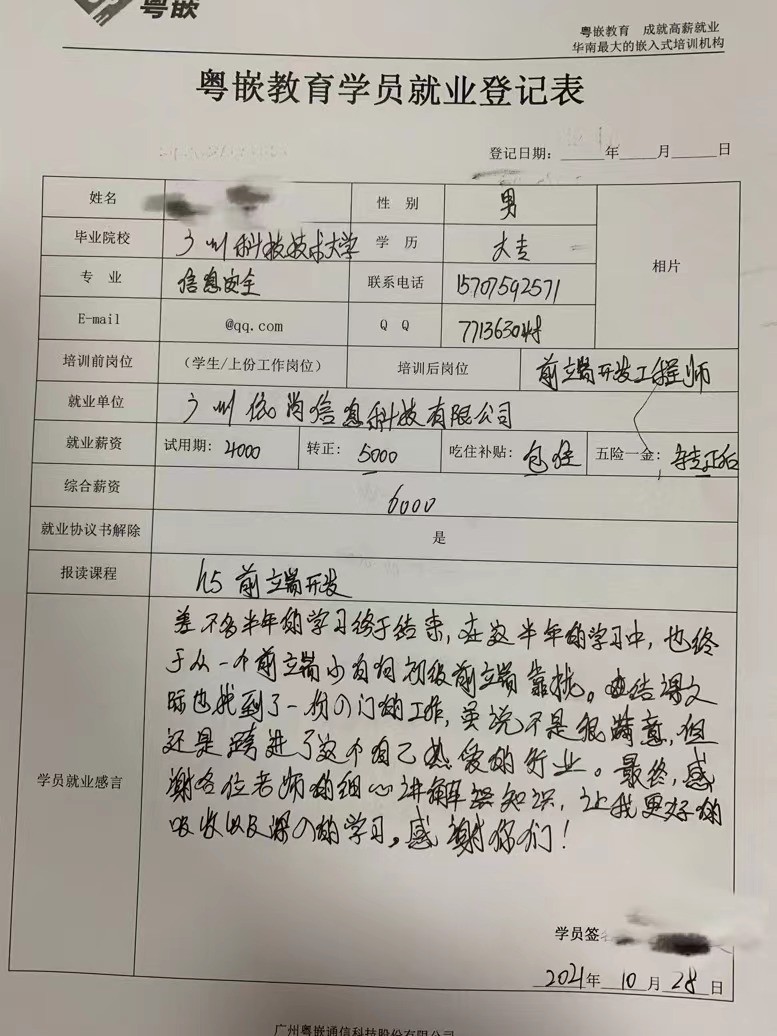 粤嵌
粤嵌教育 成就高薪就业
华南最大的嵌入式培训机构
粤嵌教育学员就业登记表
登记日期：____年____月____日
姓名 性 别 男
毕业院校 广州科技技术大学 学 历 大专 相片
专 业 信息安全 联系电话 15707592571
E-mail @qq.com Q Q 7713630
培训前岗位 （学生/上份工作岗位） 培训后岗位 前端开发工程师
就业单位 广州依尚信息科技有限公司
就业薪资 试用期：4000 转正：5000 吃住补贴：包住 五险一金：转正后
综合薪资 6000
就业协议书解除 是
报读课程 h5 前端开发
差不多半年的学习终于结束，在这半年的学习中，也终
于从一个前端小白向初级前端靠拢。结课之
际也找到了一份入门的工作，虽说不是很满意，但
还是跨进了这个自己热爱的行业。最终，感
学员就业感言
谢各位老师的细心讲解知识，让我更好的
吸收以及深入的学习。感谢你们！
学员签
2021年 10 月 28 日
广州粤嵌通信科技股份有限公司